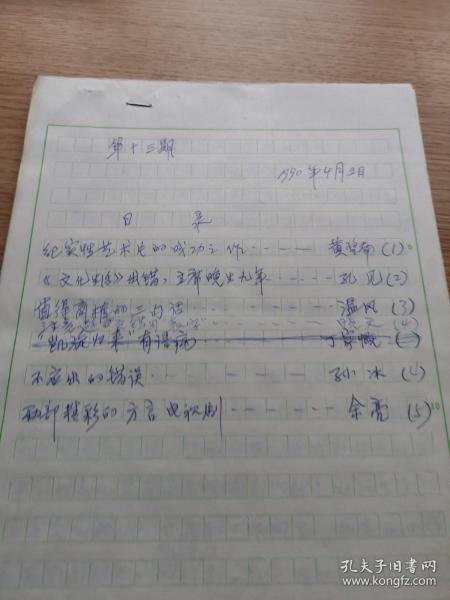 第十三期
1990年4月2日
目 录
纪实性艺术片的成功之作 ---- 黄 (1)
《文化生活》出错,主席晚生九年 ---- 孔见 (2)
值得商榷的三句话 ---- 温风 (3)
(4)
"凯旋归来"有语病 ----
不应出的错误 ---- 孙冰 (4)
一部精彩的方言电视剧 ---- 余亮 (5)
孔夫子旧书网
www.kongfz.com